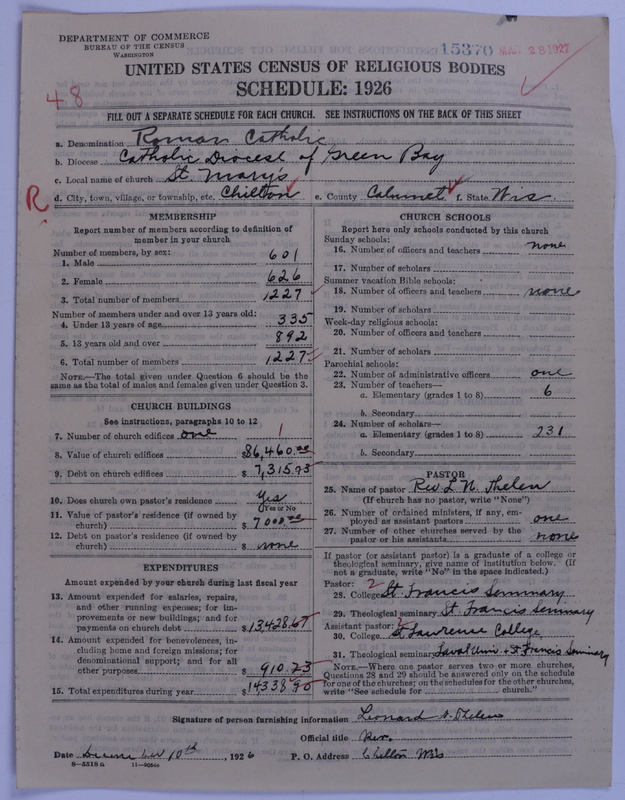 DEPARTMENT OF COMMERCE
BUREAU OF THE CENSUS
WASHINGTON
15370 MAY 28 1927
UNITED STATES CENSUS OF RELIGIOUS BODIES
SCHEDULE: 1926
48
FILL OUT A SEPARATE SCHEDULE FOR EACH CHURCH. SEE INSTRUCTIONS ON THE BACK OF THIS SHEET
a. Denomination Roman Catholic
b. Diocese Catholic Diocese of Green Bay
c. Local name of church St. Marys
R d. City, town, village, or township, etc. Chilton e. County Calumet f. State Wis.
MEMBERSHIP
Report number of members according to definition of
member in your church
Number of members, by sex:
1. Male 601
2. Female 626
3. Total number of members 1227
Number of members under and over 13 years old:
4. Under 13 years of age 335
5. 13 years old and over 892
6. Total number of members 1227
NOTE.—The total given under Question 6 should be the
same as the total of males and females given under Question 3.
CHURCH BUILDINGS
See instructions, paragraphs 10 to 12
7. Number of church edifices one 1
8. Value of church edifices $86,460.00
9. Debt on church edifices $7,315.73
10. Does church own pastor's residence Yes
Yes or No
11. Value of pastor's residence (if owned by
church) $7000.00
12. Debt on pastor's residence (if owned by
church) $ none
EXPENDITURES
Amount expended by your church during last fiscal year
13. Amount expended for salaries, repairs,
and other running expenses; for im-
provements or new buildings; and for
payments on church debt $13,428.67
14. Amount expended for benevolences, in-
cluding home and foreign missions; for
denominational support; and for all
other purposes $910.23
15. Total expenditures during year $14338.90
CHURCH SCHOOLS
Report here only schools conducted by this church
Sunday schools:
16. Number of officers and teachers none
17. Number of scholars
Summer vacation Bible schools:
18. Number of officers and teachers none
19. Number of scholars
Week-day religious schools:
20. Number of officers and teachers
21. Number of scholars
Parochial schools:
22. Number of administrative officers one
23. Number of teachers—
a. Elementary (grades 1 to 8) 6
b. Secondary
24. Number of scholars—
a. Elementary (grades 1 to 8) 231
b. Secondary
PASTOR
25. Name of pastor Rev. L. N. Thelen
(If church has no pastor, write "None")
26. Number of ordained ministers, if any, em-
ployed as assistant pastors one
27. Number of other churches served by the
pastor or his assistants none
If pastor (or assistant pastor) is a graduate of a college or
theological seminary, give name of institution below. (If
not a graduate, write "No" in the space indicated.)
Pastor: 2
28. College St. Francis Seminary
29. Theological seminary St. Francis Seminary
Assistant pastor:
30. College St Lawrence College
31. Theological seminary Laval Univ. & St Francis Seminary
NOTE.—Where one pastor serves two or more churches,
Questions 28 and 29 should be answered only on the schedule
for one of the churches; on the schedules for the other churches,
write "See schedule for church."
Signature of person furnishing information Leonard N. Thelen
Official title Rev.
Date 10th, 1926 P. O. Address Chilton Wis
8—5518a 11—9054a